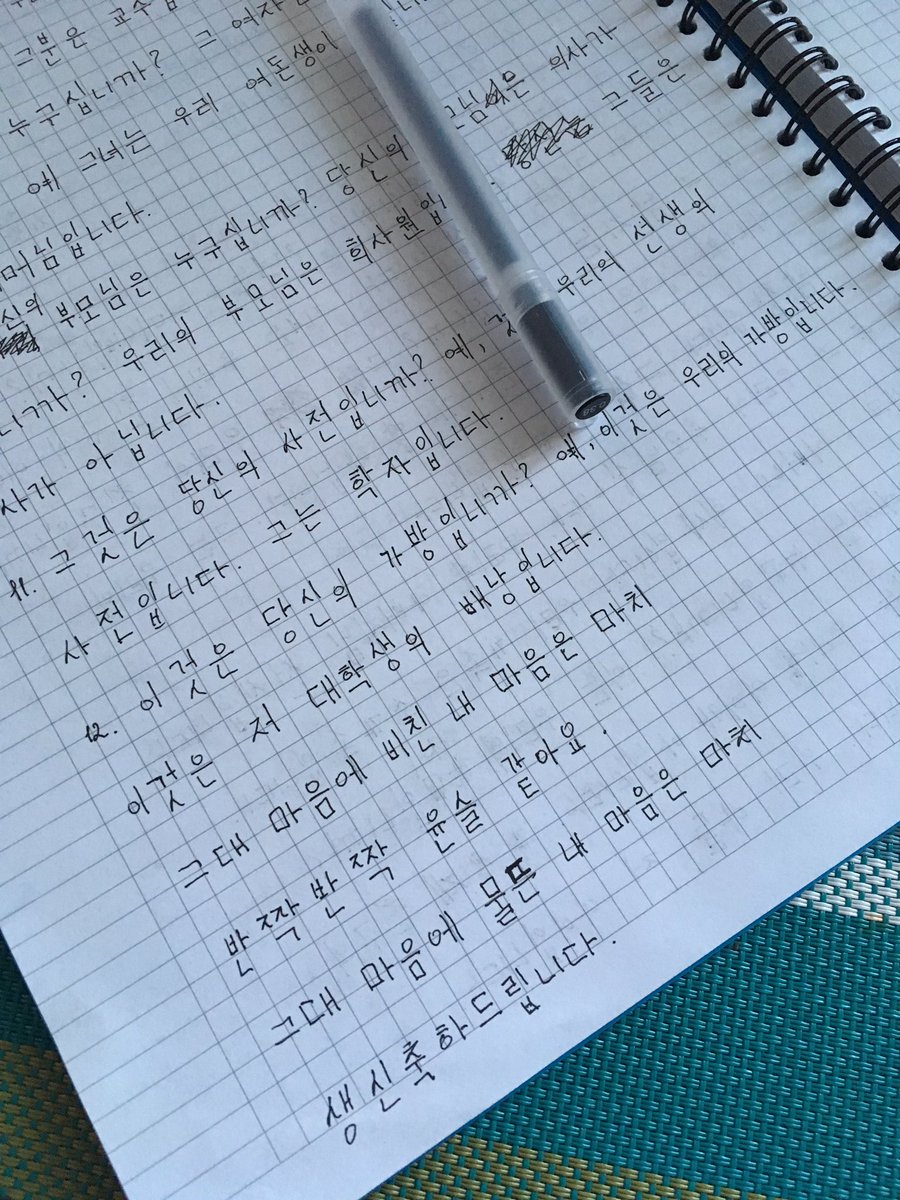 그분은 교수
누구십니까? 그 여자
예 그녀는 우리 여돈생이
머님입니다.
신의 부모님은 누구십니까? 당신의 모님은 의사가
니까? 우리의 부모님은 회사원입 그들은
사가 아닙니다.
11. 그것은 당신의 사전입니까? 예, 우리의 선생의
사전입니다. 그는 학자입니다.
12. 이것은 당신의 가방입니까? 예, 이것은 우리의 가방입니다.
이것은 저 대학생의 배낭입니다.
그대 마음에 비친 내 마음은 마치
반짝반짝 윤슬 같아요.
그대 마음에 물뜬 내 마음은 마치
생신축하드립니다.